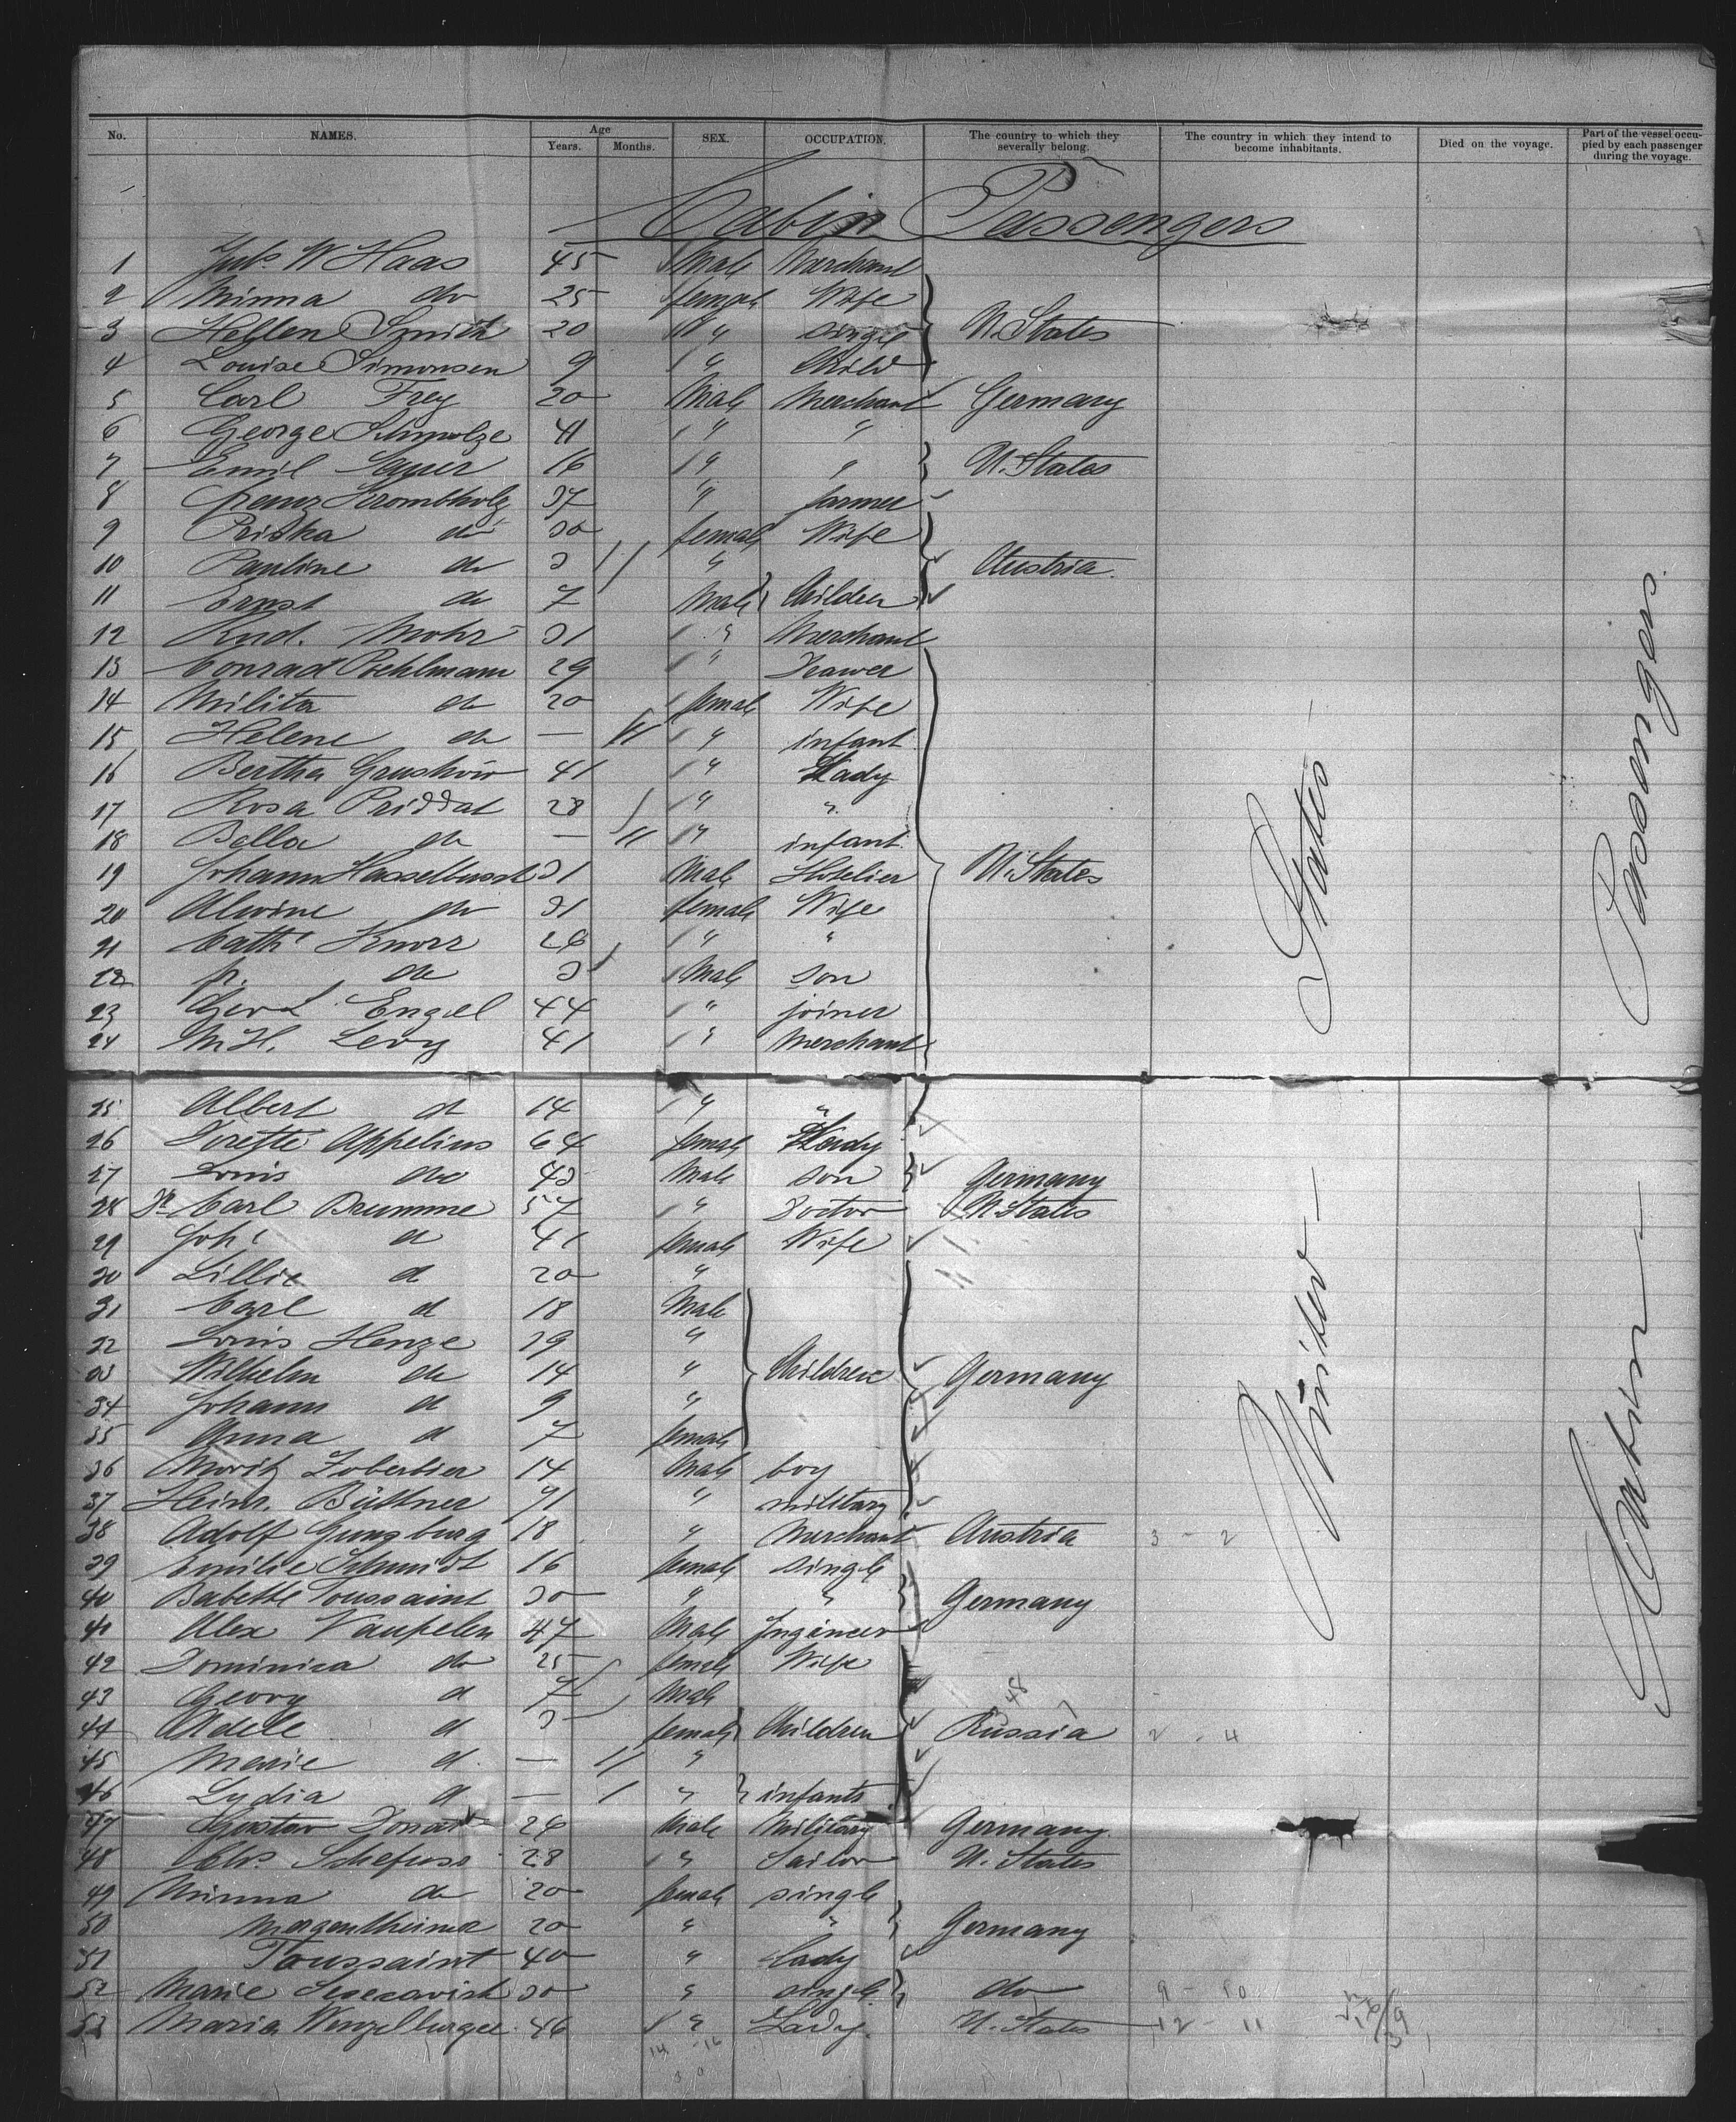 No. NAMES. Age Years. Months. SEX. OCCUPATION. The country to which they severally belong. The country in which they intend to become inhabitants. Died on the voyage. Part of the vessel occupied by each passenger during the voyage.
Cabin Passengers
1 W Haas 45 Male Merchant
2 Minna do 25 female Wife
3 Hellen Smith 20 " single U. States
4 Louise Simonsen 9 " Child
5 Carl Frey 20 Male Merchant Germany
6 George Schmolze 41 " "
7 Emil 16 " " U. States
8 Franz Krombholz 37 " farmer
9 Priska do 30 female Wife
10 Pauline do 3 " Austria.
11 Ernst do 7 Male Children
12 Rud. Mohr 31 " Merchant
13 Conrad Poehlmann 29 "
14 Milita do 20 female Wife
15 Helene do — " infant
16 Bertha 41 " Lady
17 Rosa Priddat 28 " "
18 Bella do — 11 " infant
19 Johann 31 Male Hotelier U. States
20 Alwine do 31 female Wife
21 Cath. Knorr 26 " "
22 fr. do 3 Male son
23 Gerd Engel 44 " joiner
24 M.H. Levy 41 " Merchant
25 Albert do 14 " "
26 Dorette Appelius 64 female Lady
27 Louis do 43 Male son Germany
28 Dr. Carl Brumme 57 " Doctor U. States
29 Joh. do 41 female Wife
30 Lillie do 20 "
31 Carl do 18 Male
32 Louis Henze 29 "
33 Wilhelm do 14 " Children Germany
34 Johann do 9 "
35 Anna do 7 female
36 Moritz Zoberbier 14 Male boy
37 Heinr. Büttner 31 " military
38 Adolf Gunzburg 18 " Merchant Austria 3 - 2
39 Emilie Schmidt 16 female single
40 Babette Toussaint 30 " " Germany
41 Alex Vaupelen 47 Male Ingineer
42 Dominica do 25 female Wife
43 Georg do 7 Male
44 Adele do 3 female Children Russia 2 - 4
45 Marie do — 11 "
46 Lydia do — 1 " infants
47 Gustav Donat 26 Male Military Germany
48 Chs. Schefuss 28 " Sailor U. States
49 Minna do 20 female single
50 Morgentheimer 20 " " Germany
51 Toussaint 40 " Lady
52 Marie 30 " single do 9 - 10
53 Maria Wenzelburger 46 " Lady. U. States 12 - 11
United States
Cabin Passengers.